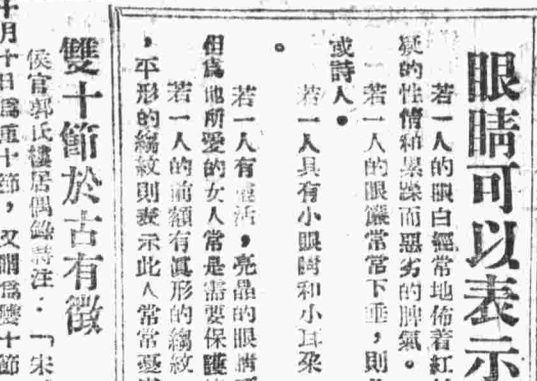 眼睛可以表示
若一人的眼白經常地佈着紅
疑的性情和暴躁而惡劣的脾氣。
若一人的眼簾常常下垂,則
或詩人。
若一人具有小眼睛和小耳朶
。
若一人有靈活,亮晶的眼睛
但爲他所愛的女人常是需要保護
若一人的前額有眞形的縐紋
,平形的縐紋則表示此人常常憂
雙十節於古有徵
侯官郭氏樓居偶錄詩注:「宋
十月十日爲重十節,又謂爲雙十節